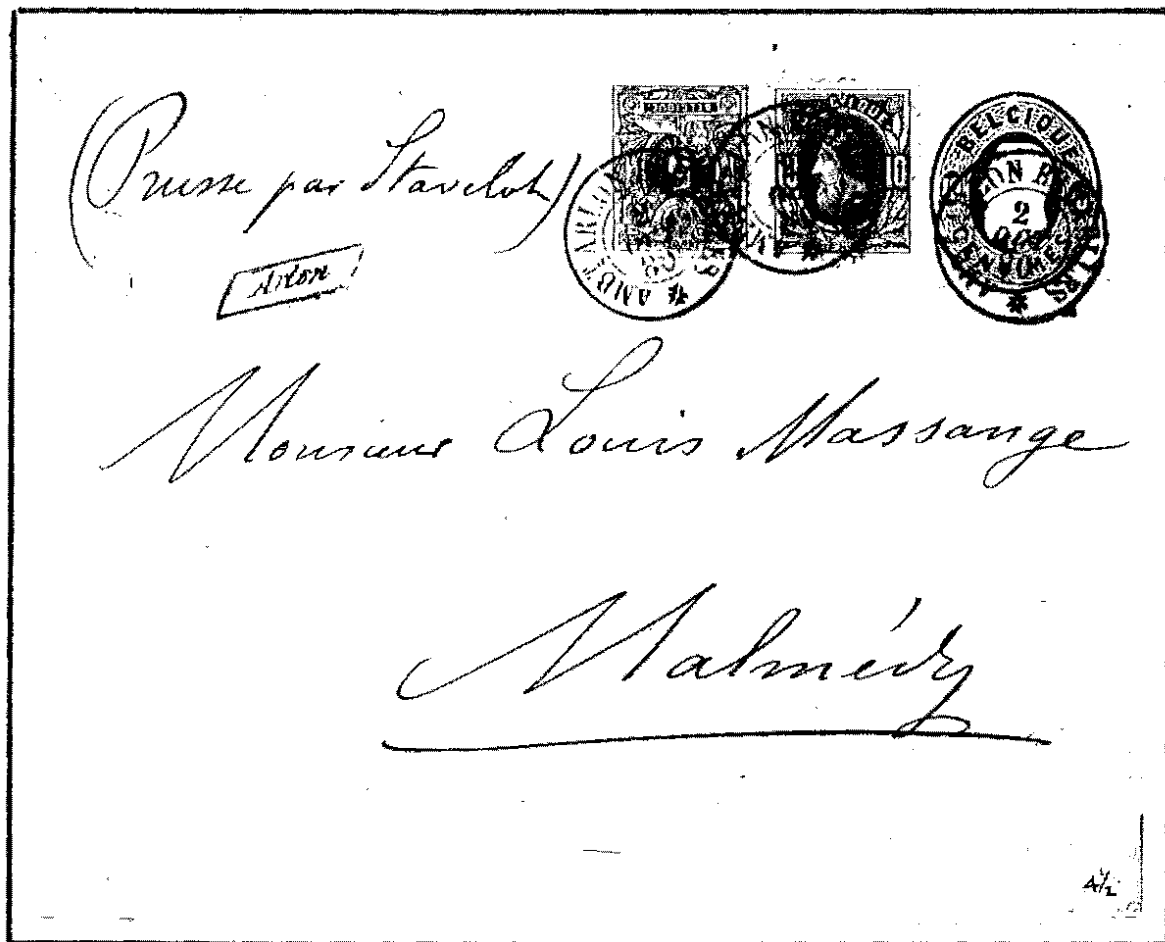 (Prusse par Stavelot)
Arlon
BELGIQUE
2
OCT
CENTIMES
Monsieur Louis Massange
Malmédy
4½